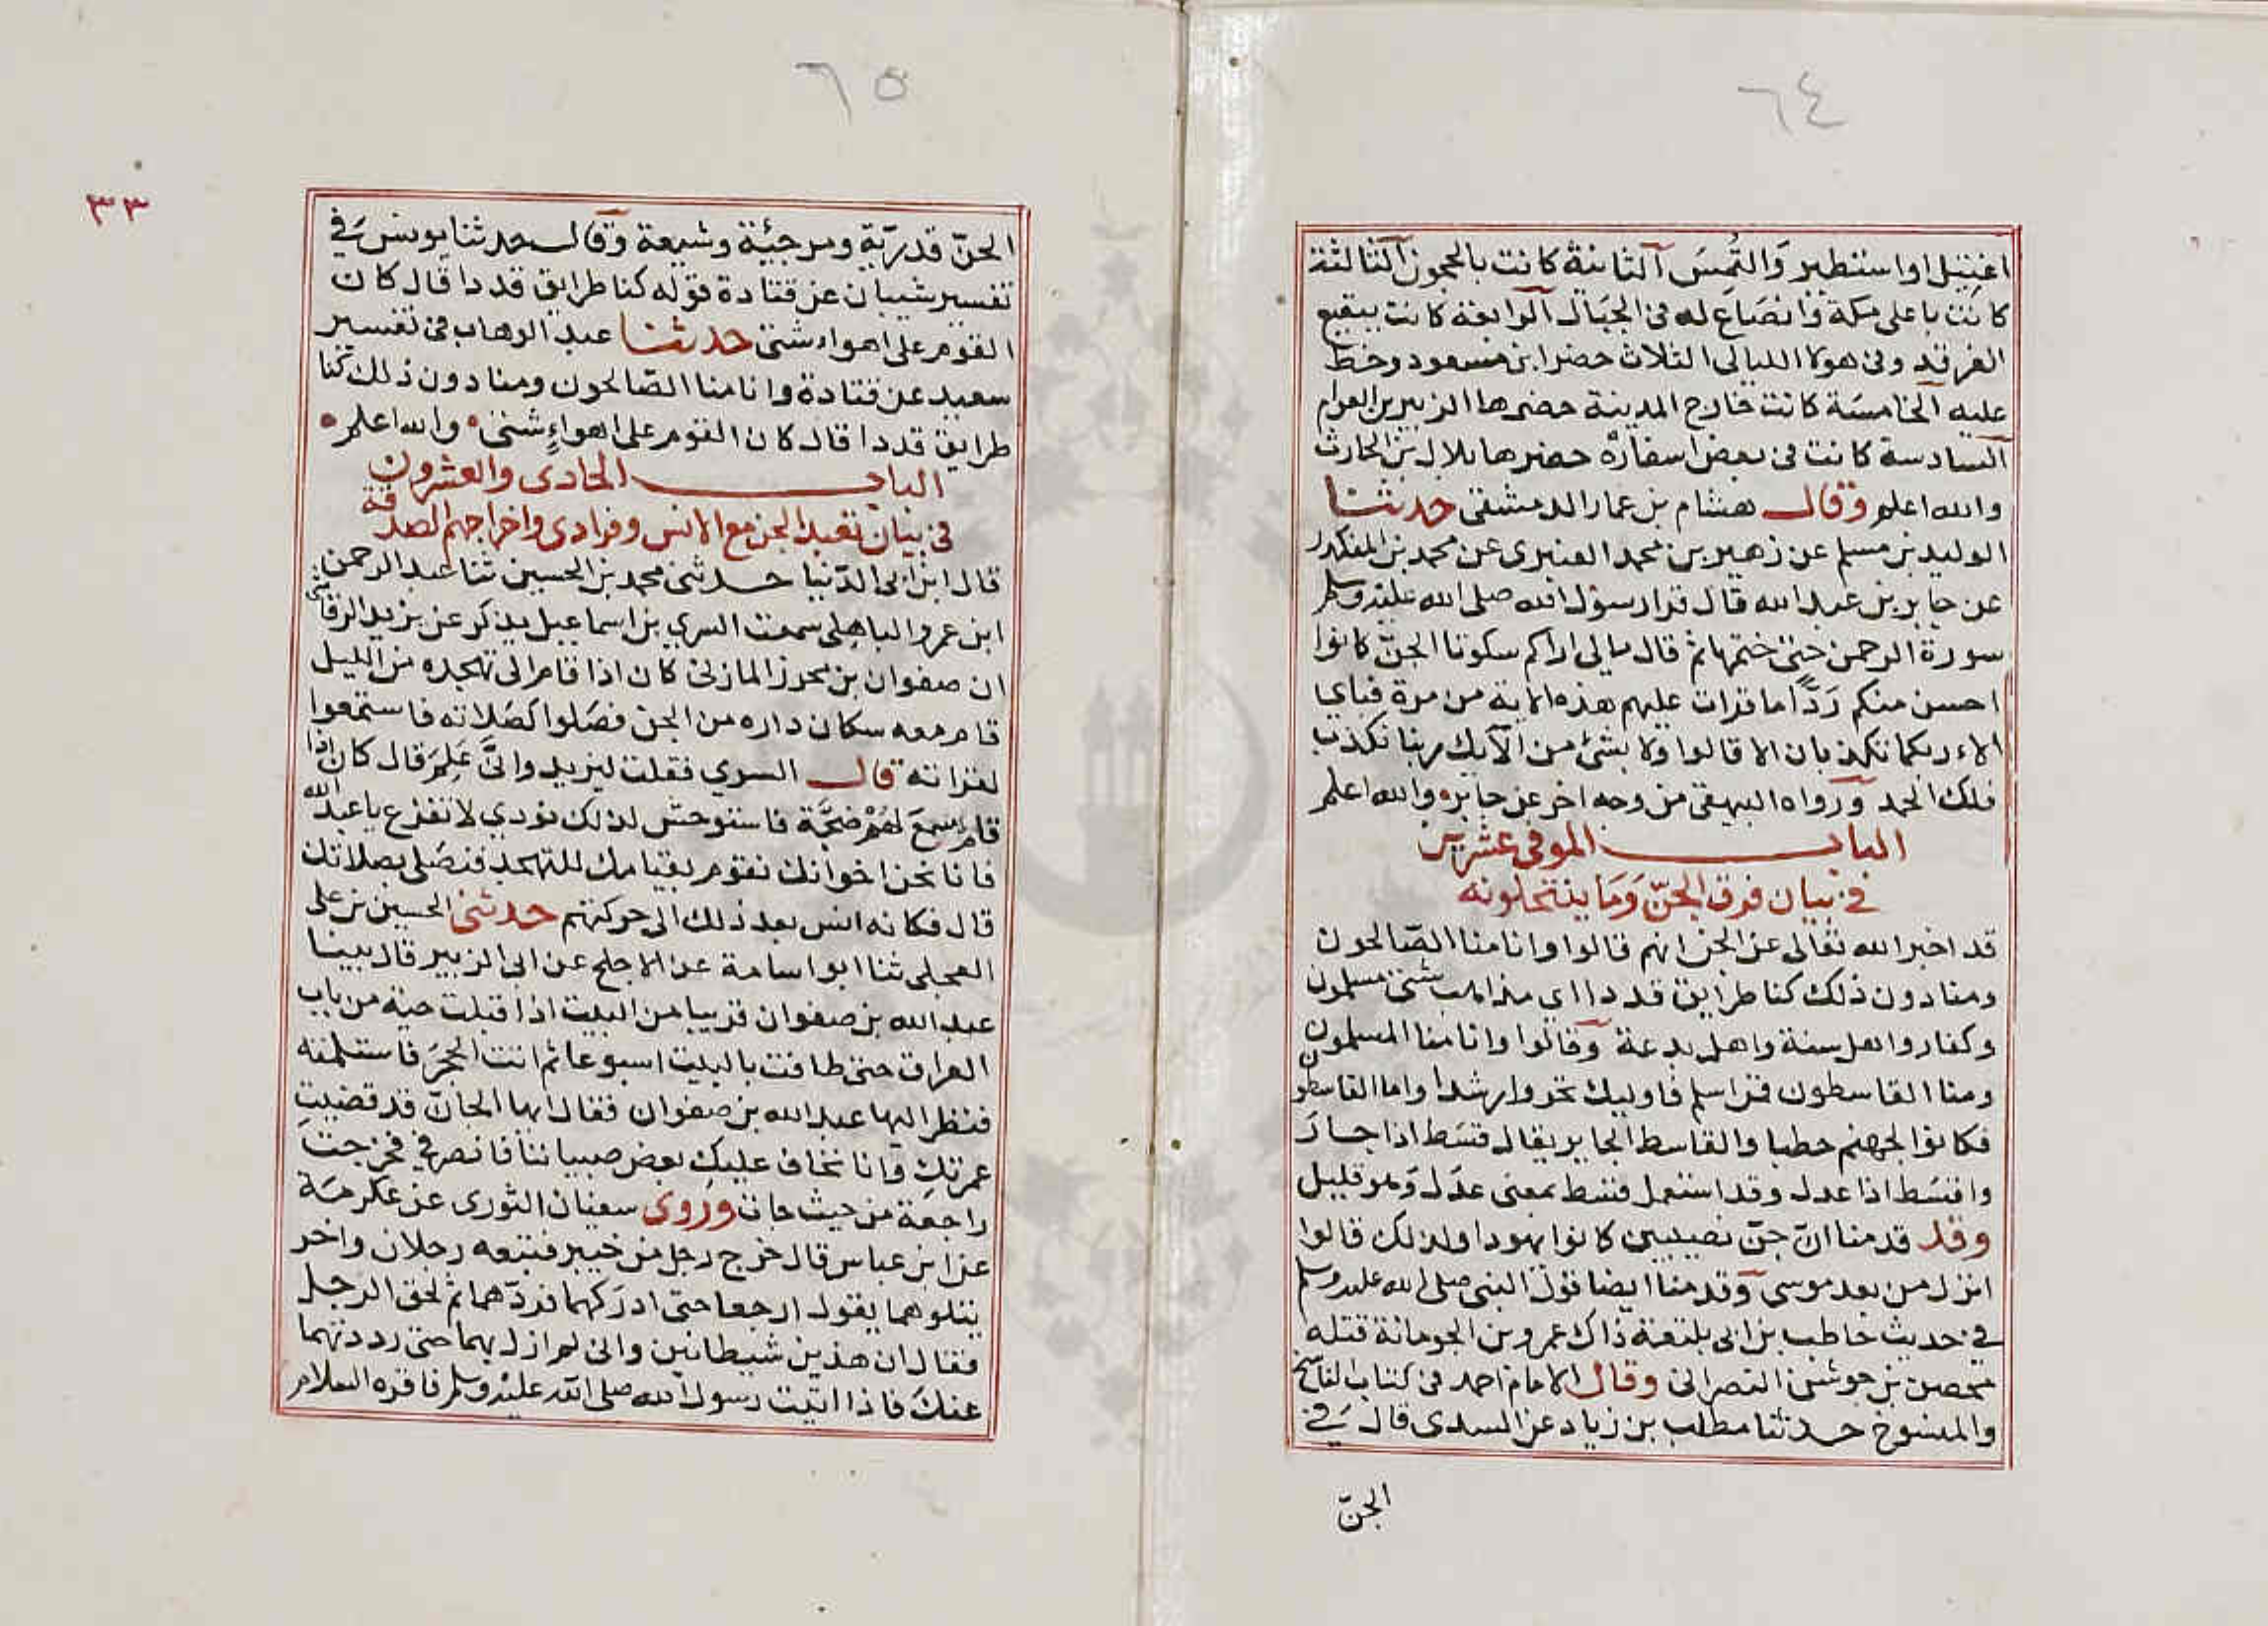 ٦٤
اغتيل او استطير والتُمِسَ الثانية كانت بالحجون الثالثة
كانت باعلى مكة وانصاع له فى الجبال الرابعة كانت ببقيع
الغرقد وفى هولا الليالى الثلاث حضر ابن مسعود وخط
عليه الخامسة كانت خارج المدينة حضرها الزبير بن العوام
السادسة كانت فى بعض اسفاره حضرها بلال بن الحارث
والله اعلم وقال هشام بن عمار الدمشقى حدثنا
الوليد بن مسلم عن زهير بن محمد العنبرى عن محمد بن المنكدر
عن جابر بن عبد الله قال قرا رسول الله صلى الله عليه وسلم
سورة الرحمن حتى ختمها ثم قال مالى اراكم سكوتا الجنّ كانوا
احسن منكم رَدًّا ما قرات عليهم هذه الاية من مرة فباي
الاء ربكما تكذبان الا قالوا ولا بشئ من الآيك ربنا نكذب
فلك الحمد ورواه البيهقى من وجه اخر عن جابر والله اعلم
الباب الموفى عشرين
فى بيان فرق الجنّ وَمَا ينتحلونه
قد اخبر الله تعالى عن الجن انهم قالوا وانا منا الصّالحون
ومنا دون ذلك كنا طرايق قددا اى مذاهب شتى مسلمون
وكفار واهل سنة واهل بدعة وقالوا وانا منا المسلمون
ومنا القاسطون فمن اسلم فاوليك تحروا رشدا واما القاسطون
فكانوا لجهنم حطبا والقاسط الجاير يقال قسَط اذا جارَ
واقسَط اذا عدل وقد استعمل قسط بمعنى عدَل وَهو قليل
وقد قدمنا انّ جنّ نصيبين كانوا يهودا ولذلك قالوا
انزل من بعد موسى وقدمنا ايضا قول النبى صلى الله عليه وسلم
فى حديث حاطب بن ابى بلتعة ذاك عمرو بن الجومانة قتله
محصن بن جوشن النصرانى وقال الامام احمد فى كتاب الناسخ
والمنسوخ حدثنا مطلب بن زياد عن السدى قال فِى
الجنّ
٦٥
٣٣
الجنّ قدريّة ومرجئة وشيعة وقال حدثنا يونس فِى
تفسير شيبان عن قتادة قوله كنا طرايق قددا قال كان
القوم على اهواء شتى حدثنا عبد الوهاب فى تفسير
سعيد عن قتادة وانا منا الصّالحون ومنا دون ذلك كنّا
طرايق قددا قال كان القوم على اهواءٍ شتى والله اعلم
الباب الحادى والعشرون
فى بيان تعبد الجن مع الانس وفرادى واخراجهم الصدقة
قال ابن ابى الدّنيا حدثنى محمد بن الحسين ثنا عبد الرحمن
ابن عمرو الباهلى سمعت السري بن اسماعيل يذكر عن يزيد الرقاشى
ان صفوان بن محرز المازنى كان اذا قام الى تهجده من الليل
قام معه سكان داره من الجن فصَلوا كصَلاته فاستمعوا
لقراته قال السري فقلت ليزيد وانَّى عَلِمَ قال كان اذا
قام سمعَ لهُمْ ضجَّة فاستوحش لذلك نودي لا تفزع يا عبد الله
فانا نحن اخوانك نقوم بقيامك للتهجد فنصَلى بصلاتك
قال فكانه انس بعد ذلك الى حركتهم حدثنى الحسين بن على
العجلى ثنا ابو اسامة عن الاجلح عن ابى الزبير قال بينا
عبد الله بن صفوان قريبا من البيت اذا قبلت حية من باب
العراق حتى طافت بالبيت اسبوعا ثم اتت الحجرَ فاستلمته
فنظر اليها عبد الله بن صفوان فقال ايها الجانّ قد قضيتِ
عمرتكِ وانا نخاف عليكِ بعض صبياننا فانصرفى فخرجت
راجعة من حيث جات وروى سفيان الثورى عن عكرمة
عن ابن عباس قال خرج رجل من خيبر فتبعه رجلان واخر
يتلوهما يقول ارجعا حتى ادرَكهما فردّهما ثم لحق الرجل
فقال ان هذين شيطانين وانى لم ازل بهما حتى رددتهما
عنكَ فاذا اتيت رسول الله صلى الله عليه وسلم فاقره السلام